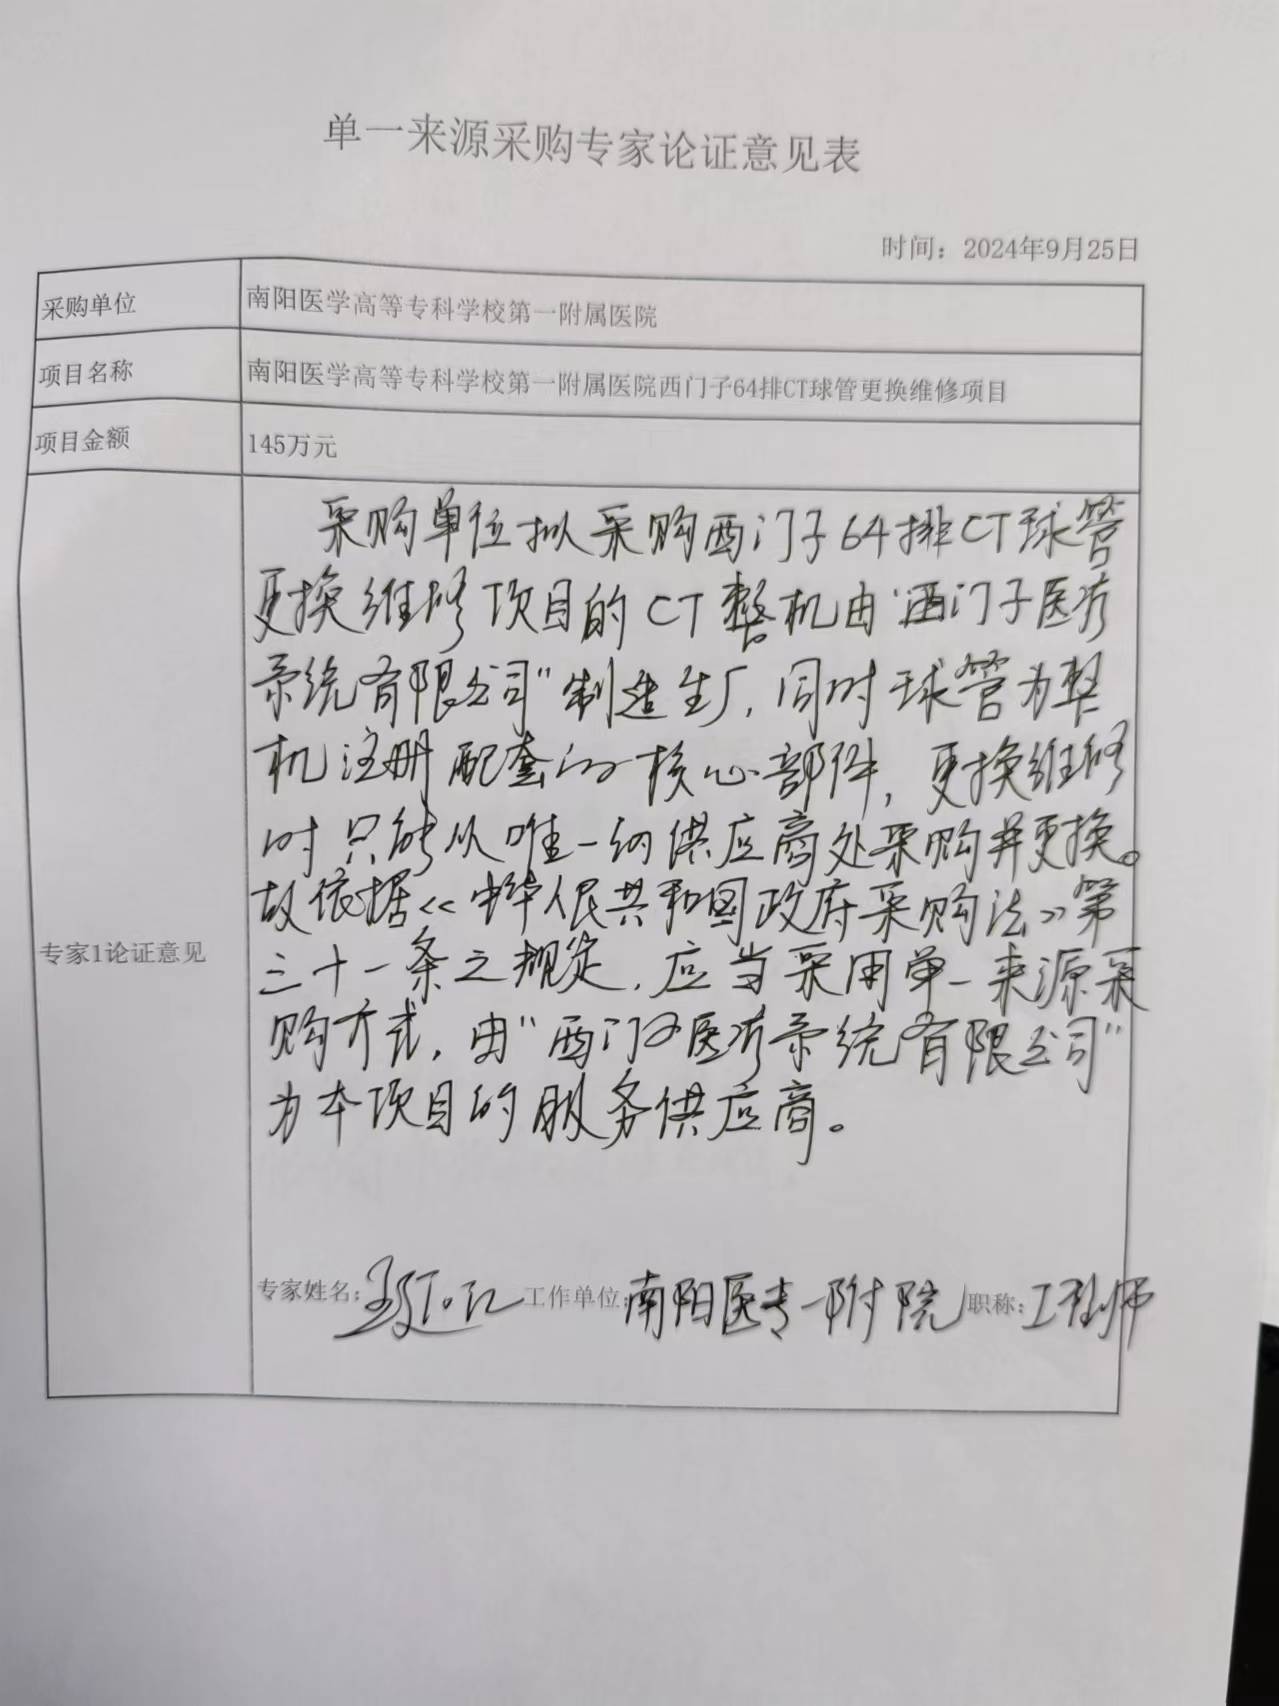 单一来源采购专家论证意见表
时间：2024年9月25日
采购单位
南阳医学高等专科学校第一附属医院
项目名称
南阳医学高等专科学校第一附属医院西门子64排CT球管更换维修项目
项目金额
145万元
专家1论证意见
采购单位拟采购西门子64排CT球管
更换维修项目的CT整机由“西门子医疗
系统有限公司”制造生厂，同时球管为整
机注册配套的核心部件，更换维修
时只能从唯一的供应商处采购并更换。
故依据《中华人民共和国政府采购法》第
三十一条之规定，应当采用单一来源采
购方式，由“西门子医疗系统有限公司”
为本项目的服务供应商。
专家姓名： 工作单位：南阳医专一附院 职称：工程师